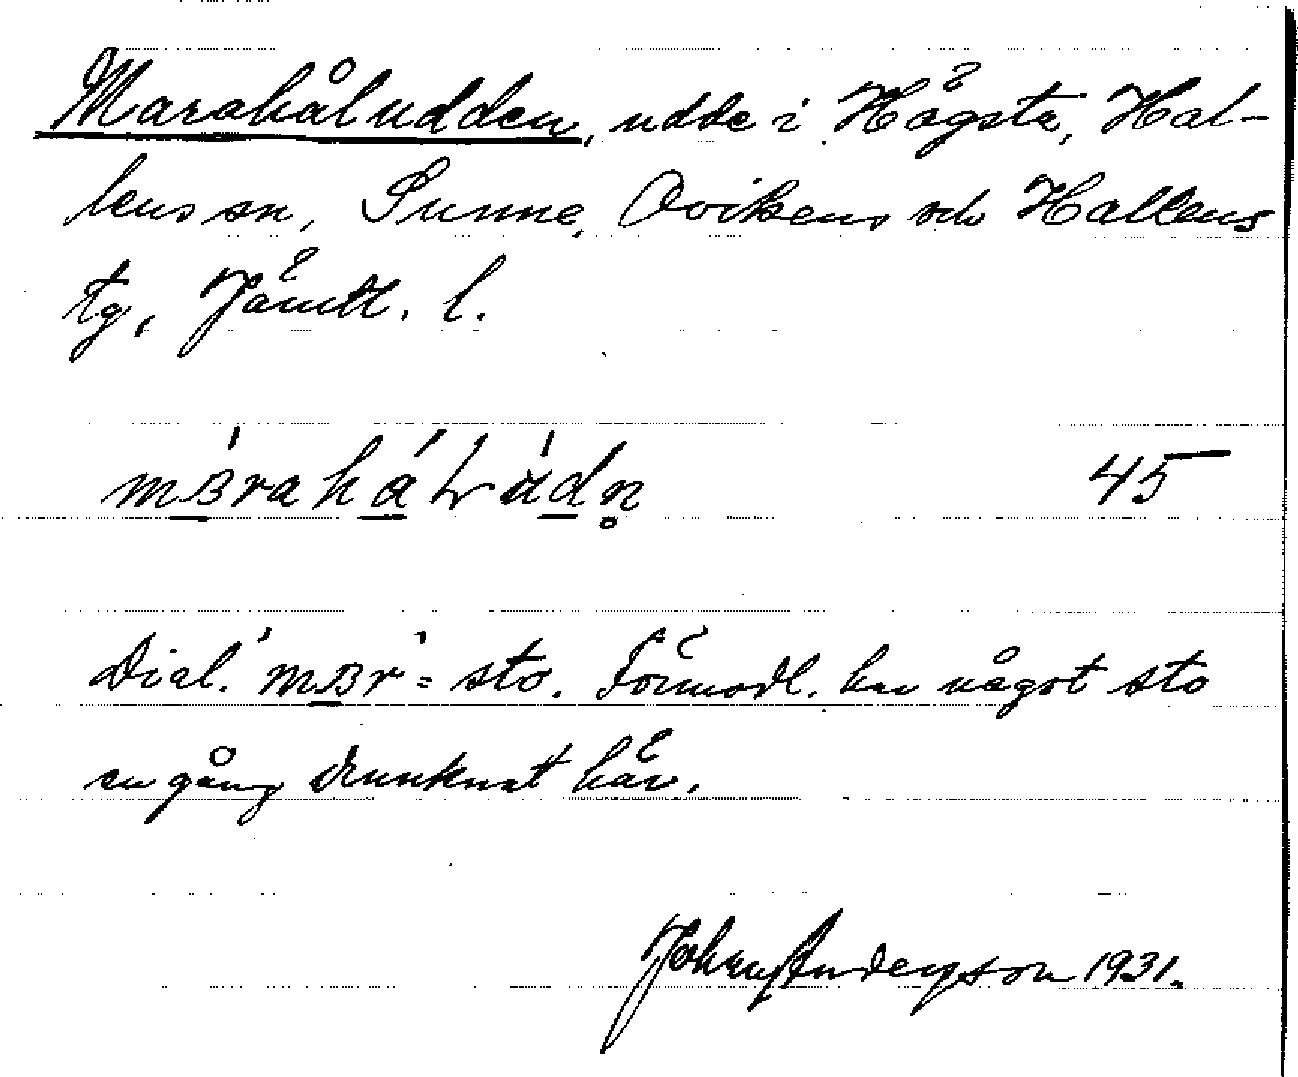 Marahåludden, udde i Högsta, Hal-
lens sn, Sunne, Ovikens och Hallens
tg, Jämtl. l.
45
Dial. mɞr = sto. Förmodl. har något sto
en gång drunknat här.
Johan Anderson 1931.